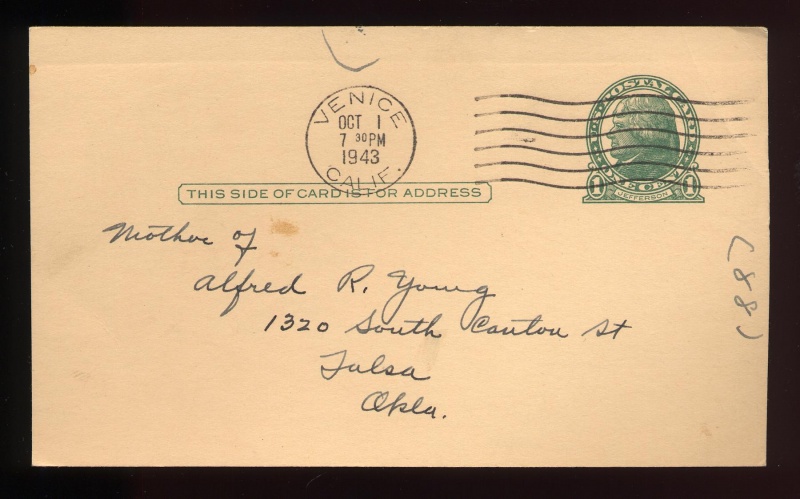 VENICE
OCT 1
7 30 PM
1943
CALIF.
U.S. POSTAL CARD
ONE CENT
1 JEFFERSON 1
THIS SIDE OF CARD IS FOR ADDRESS
Mother of
Alfred R. Young
1320 South Canton St
Tulsa
Okla.